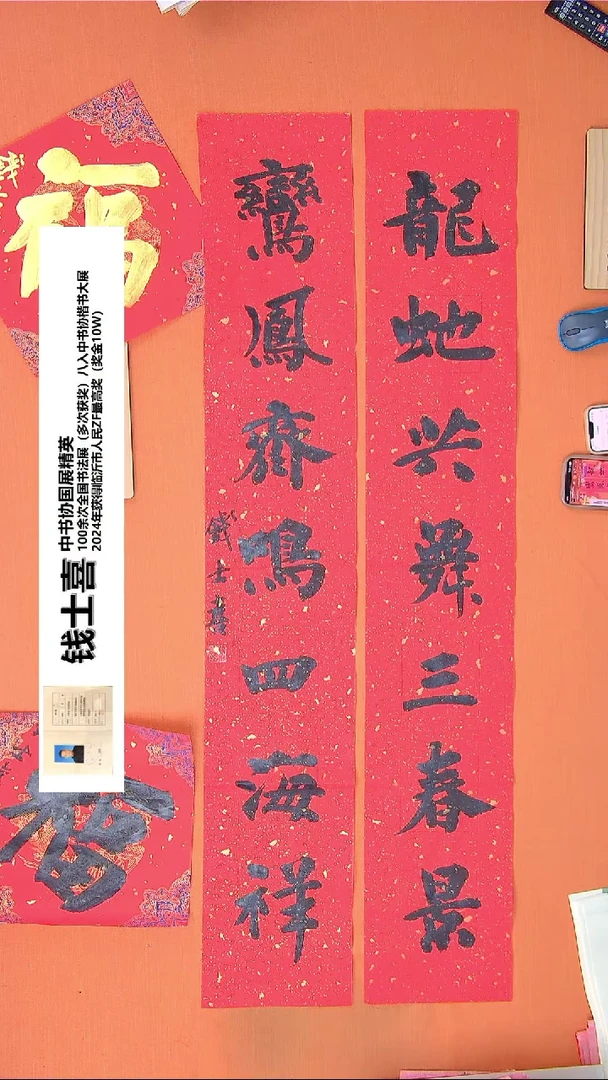 龍虵共舞三春景
鸞鳳齊鳴四海祥
錢士喜
福
福
钱士喜
中书协国展精英
100余次全国书法展（多次获奖）八入中书协楷书大展
2024年获得临沂市人民ZF最高奖（奖金10W）